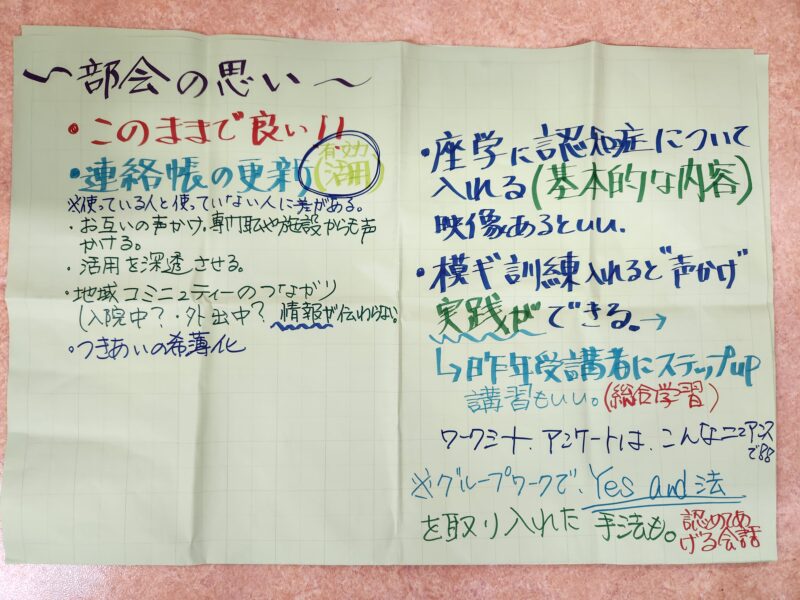 〜部会の思い〜
・このままで良い!!
・連絡帳の更新(有効活用)
※使っている人と使っていない人に差がある。
・お互いの声かけ、専門職や施設からも声
かける。
・活用を深透させる。
・地域コミニュティーのつながり
(入院中?・外出中? 情報が伝わらない
・つきあいの希薄化
・座学に認知症について
入れる(基本的な内容)
映像あるといい。
・模ギ訓練入れると"声かけ"
実践ができる。→
↳昨年受講者にステップup
講習もいい。(総合学習)
ワークシート、アンケートは、こんなニュアンス
で
※グループワークで、Yes and法
を取り入れた 手法も。認めてあ
げる会話